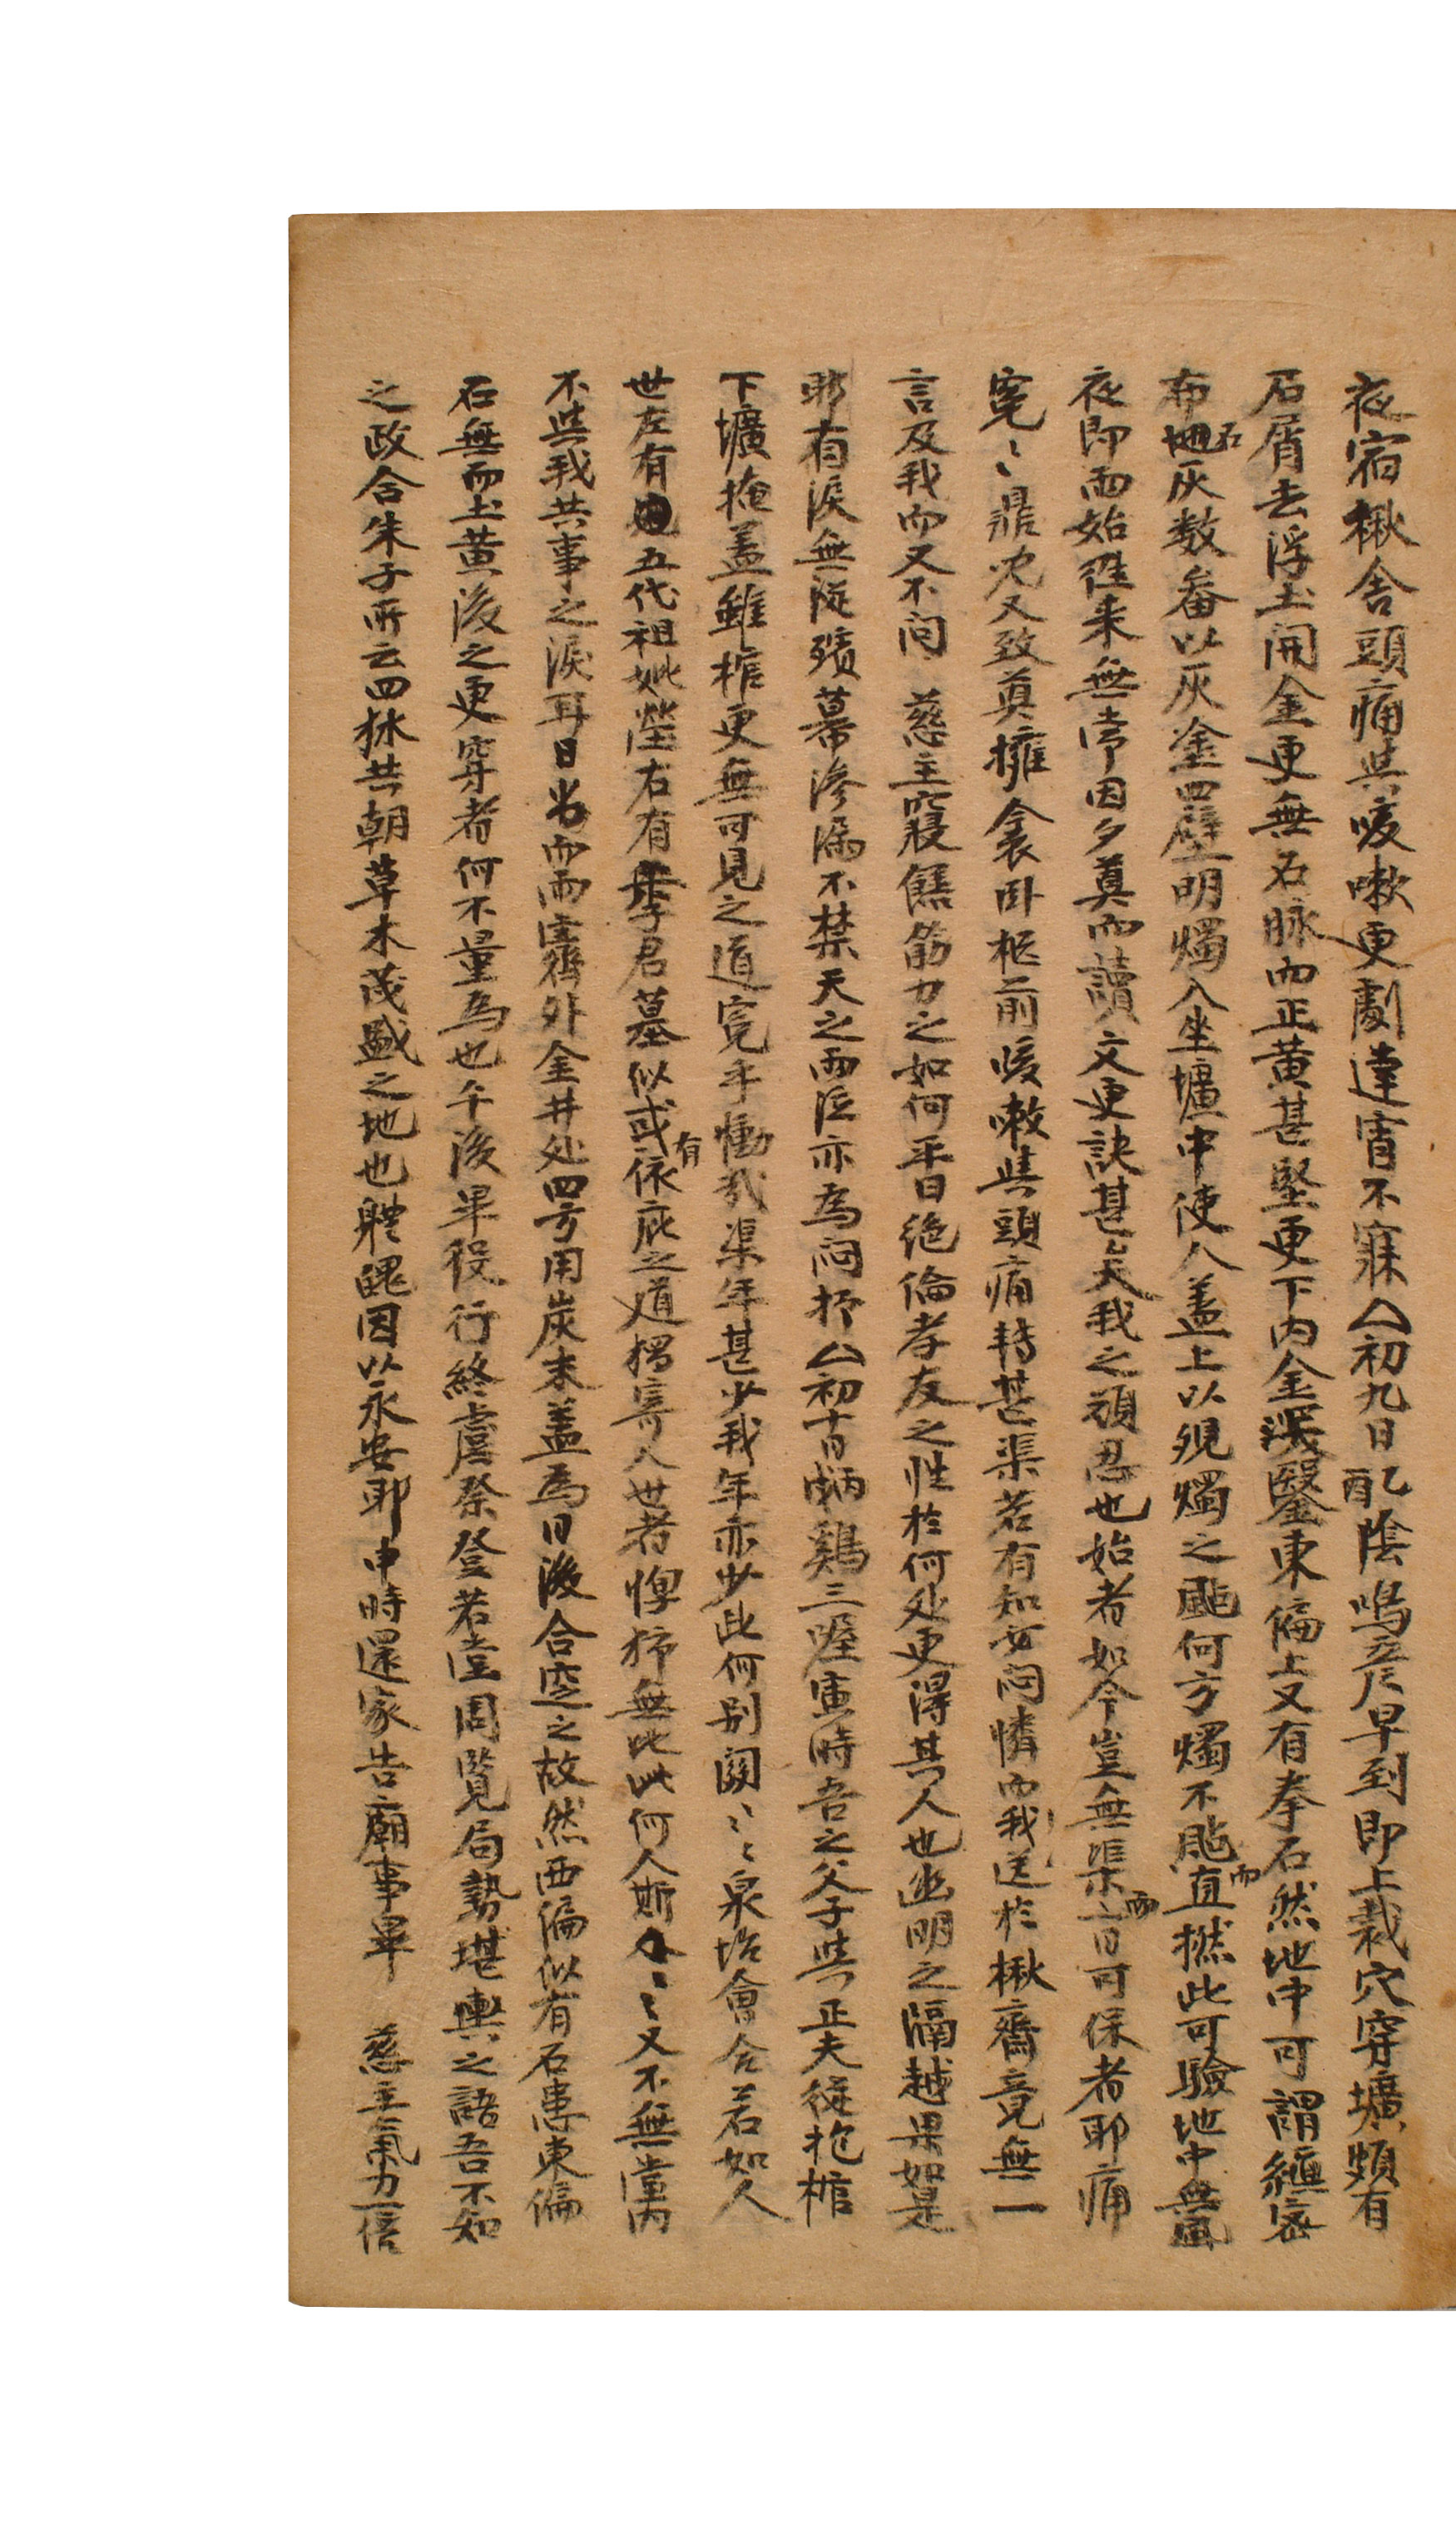 夜宿楸舍頭痛與咳嗽更劇達宵不寐△初九日乙酉陰鳴晨早到卽上裁穴穿壙頗有
石屑去浮土開金更無石脉而正黃甚堅更下內金淺鑿東偏上又有拳石然地中可謂縝密
布地石灰数畚以灰塗四壁明燭入坐壙中使人盖上以覘燭之颭何方燭不颭而直撚此可驗地中無風
夜卽雨始徃来無常因夕奠而讀文更訣甚矣我之頑忍也始者如今豈無渠而一日可保者耶痛
寃〻鼎兄又致奠擁衾卧柩前咳嗽與頭痛轉甚渠若有知安悶憐而我送於楸齋竟無一
言及我而又不問 慈主寢饍筋力之如何平日絶倫孝友之性於何处更得其人也幽明之隔越果如是
耶有淚無從殯幕滲漏不禁天之雨泣亦為悶抑△初十日丙 鷄三喔寅時吾之父子與正夫徒抱棺
下壙掩盖雖棺更無可見之道寃乎慟哉渠年甚少我年亦少此何別闋〻〻泉塲會合若如人
世左有 五代祖妣塋右有季君墓似或有依庇之道獨寄人世者惸㷀無比此何人斯〻〻又不無當內
不與我共事之淚耳日出而雨霽外金井处四方用炭末盖為日後合窆之故然西偏似有石患東偏
石無而土黃後之更穿者何不量為也午後畢役行終虞祭登若堂周覽局勢堪輿之語吾不知
之政合朱子所云四拱共朝草木茂盛之地也體魄因以永安耶申時還家告廟事畢 慈主氣力一倍